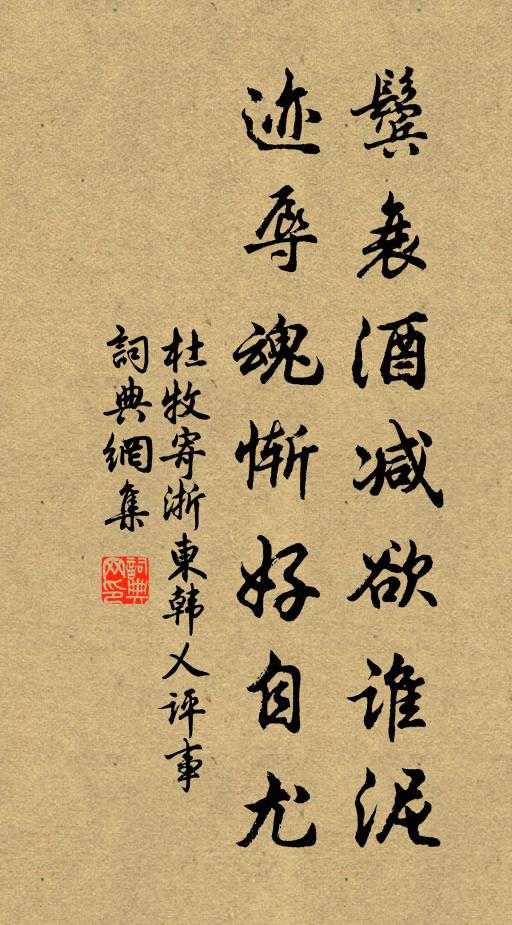 鬓衰酒减欲谁泥
迹辱魂惭好自尤
杜牧寄浙東韩乂评事
詞典網集
詞典网印